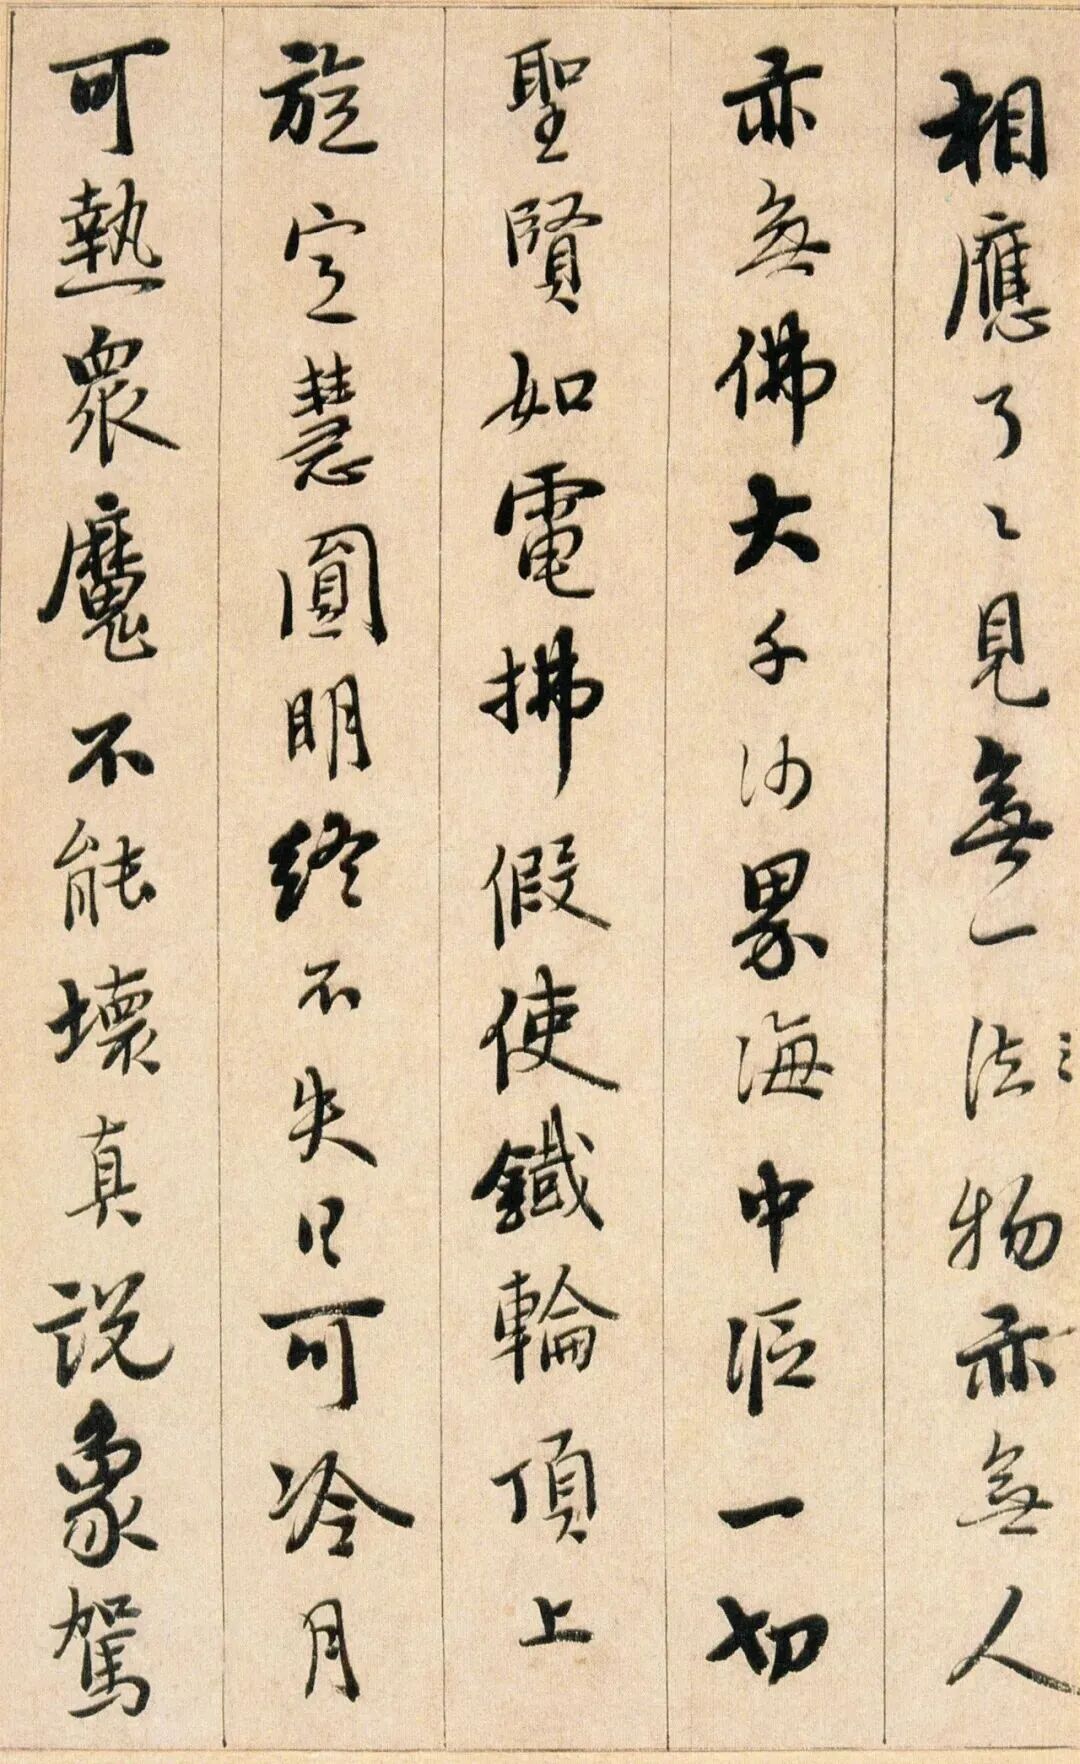 相應了々見無一法物亦無人
亦無佛大千沙界海中漚一切
聖賢如電拂假使鐵輪頂上
旋定慧圓明終不失日可冷月
可熱眾魔不能壞真說象駕